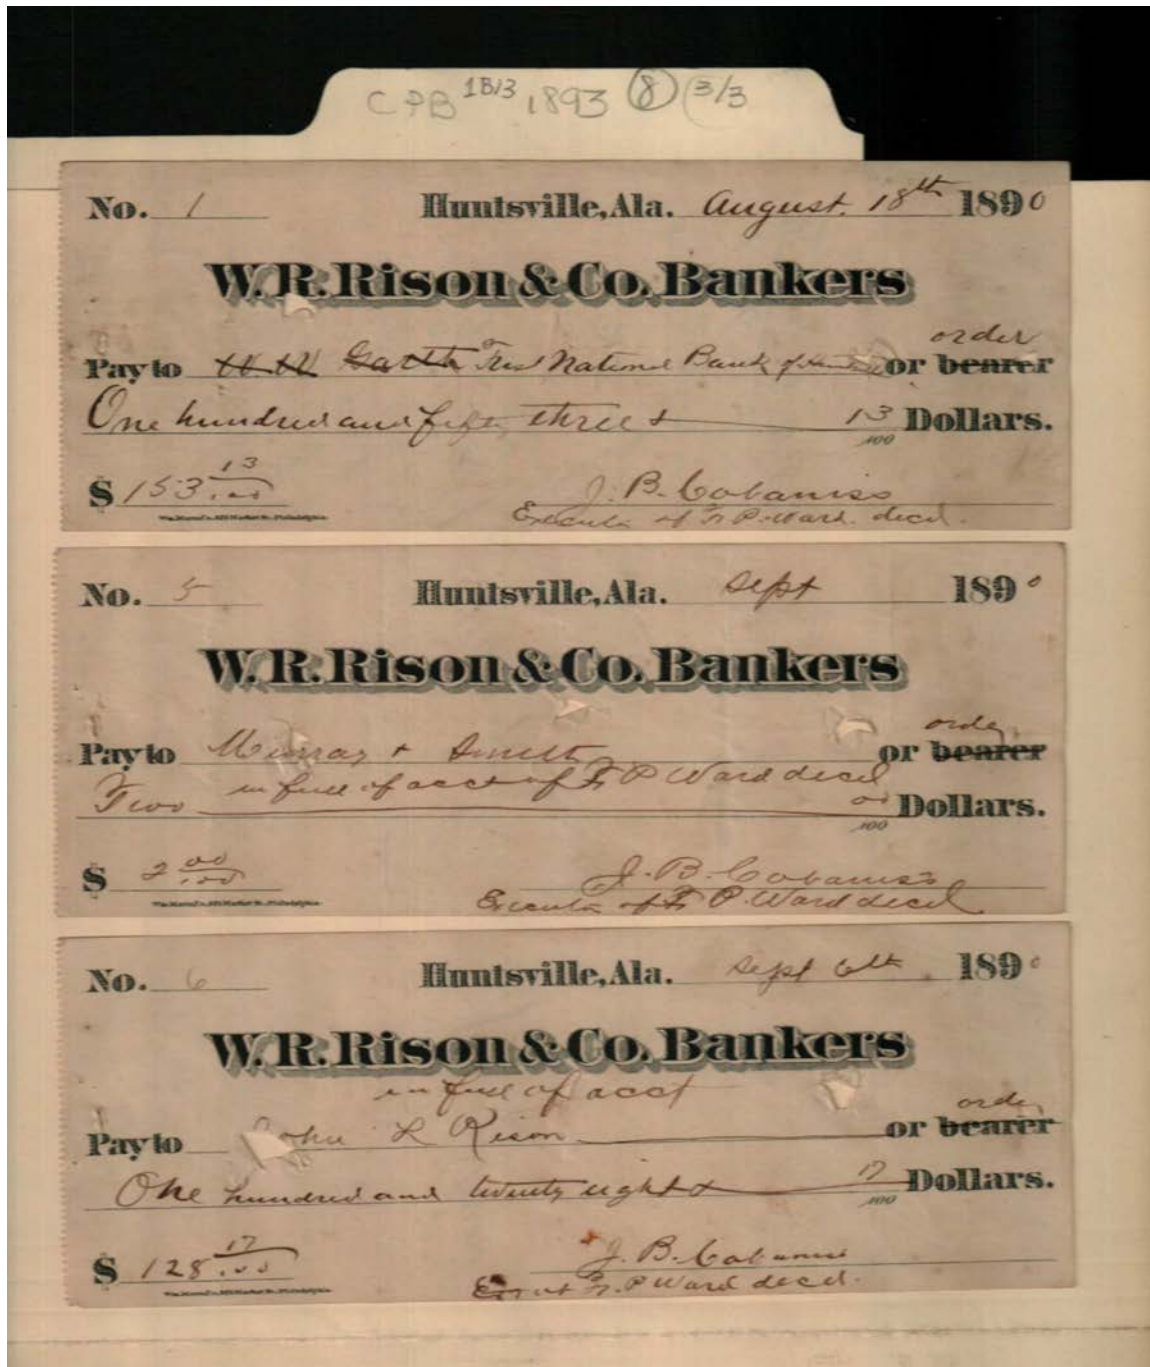 CPB 1B/3 1893 8 (3/3
No. 1 Huntsville, Ala. August. 18th 1890
W. R. Rison & Co. Bankers
order
Pay to W W Garth First National Bank of or bearer
One hundred and fifty three & 13/100 Dollars.
$ 153 13/.00
J. B. Cabaniss
Executor of F. P. Ward. decd.
No. 5 Huntsville, Ala. Sept 1890
W. R. Rison & Co. Bankers
order
Pay to Murray & Smith or bearer
in full of acct of F. P Ward decd
Two 00/100 Dollars.
$ 2 00/.00
J. B. Cabaniss
Executor of F. P. Ward decd
No. 6 Huntsville, Ala. Sept 6th 1890
W. R. Rison & Co. Bankers
in full of acct
order
Pay to John L Rison or bearer
One hundred and twenty eight & 17/100 Dollars.
$ 128 17/.00
J. B. Cabaniss
Exr of F. P Ward decd.